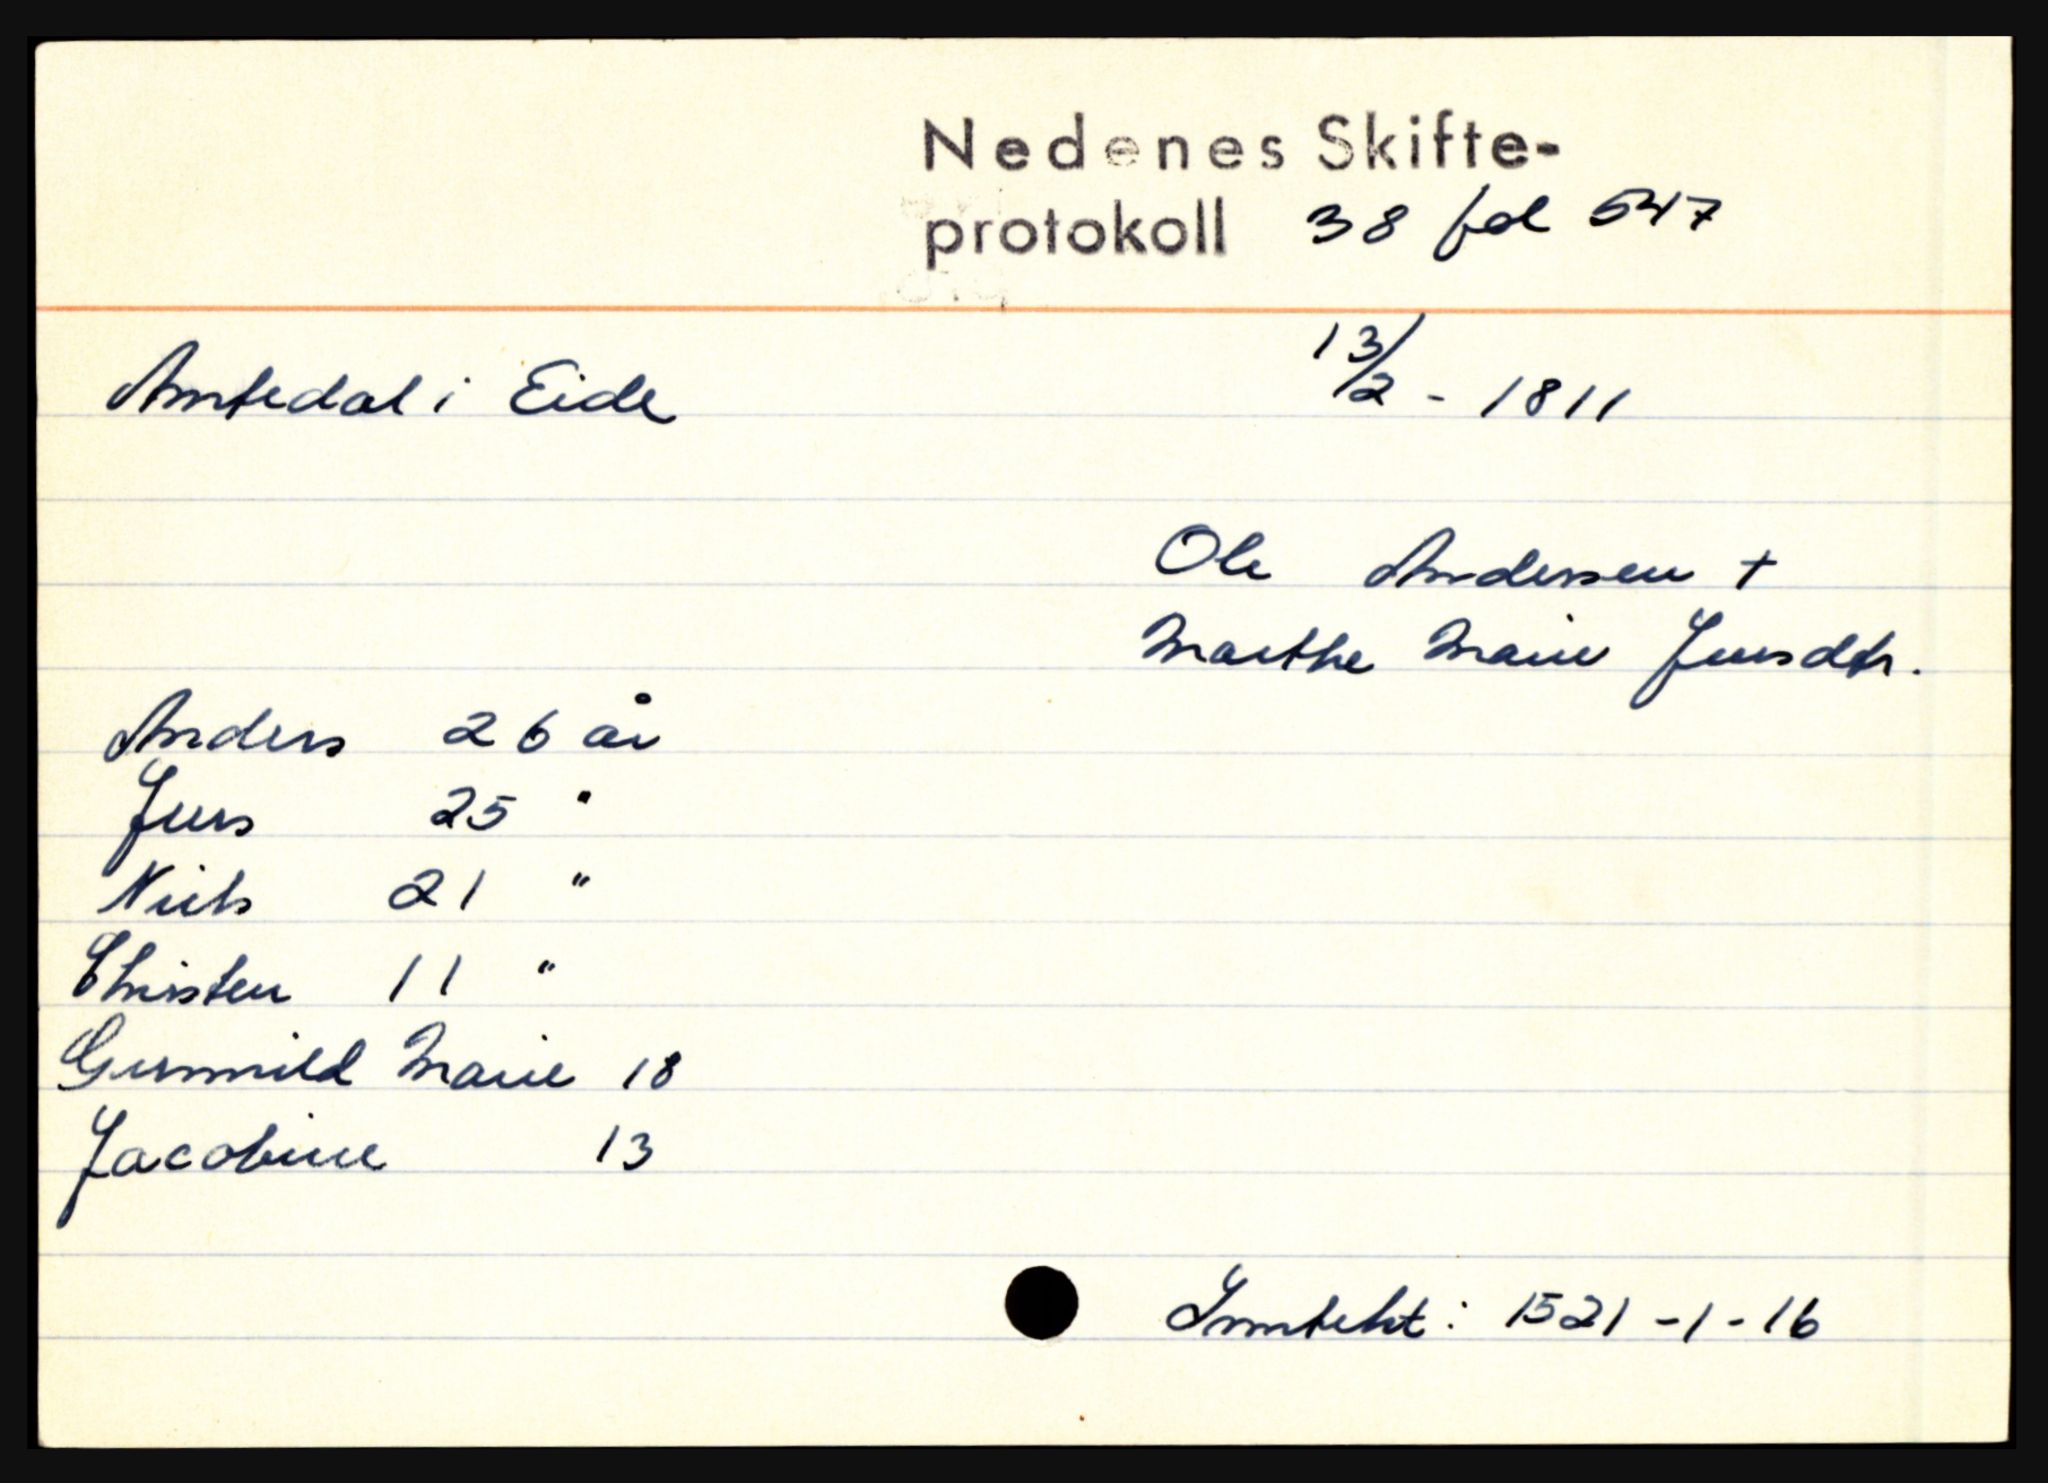 Nedenes Skifte-
protokoll 38 fol 547
Amtedal i Eide 13/2 - 1811
Ole Andersen +
Marthe Marie Jensdtr.
Anders 26 år
Jens 25 "
Niels 21 "
Christen 11 "
Gunnild Marie 18
Jacobine 13
Inntekt: 1521-1-16